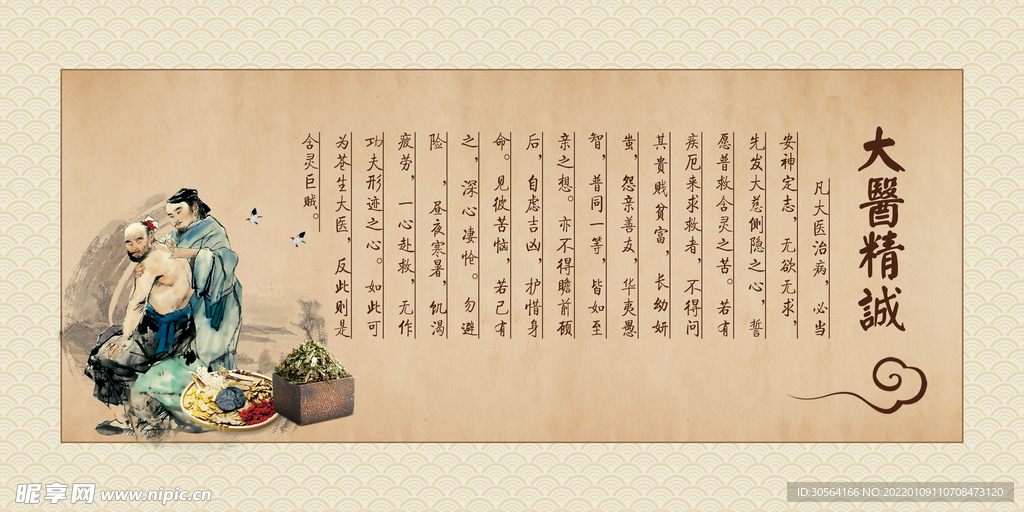 大醫精誠
凡大医治病，必当
安神定志，无欲无求，
先发大慈恻隐之心，誓
愿普救含灵之苦。若有
疾厄来求救者，不得问
其貴贱贫富，长幼妍
蚩，怨亲善友，华夷愚
智，普同一等，皆如至
亲之想。亦不得瞻前顾
后，自虑吉凶，护惜身
命。见彼苦恼，若己有
之，深心凄怆。勿避
险，昼夜寒暑，饥渴
疲劳，一心赴救，无作
功夫形迹之心。如此可
为苍生大医，反此则是
含灵巨贼。
昵享网 www.nipic.cn
ID:30564166 NO:20220109110708473120